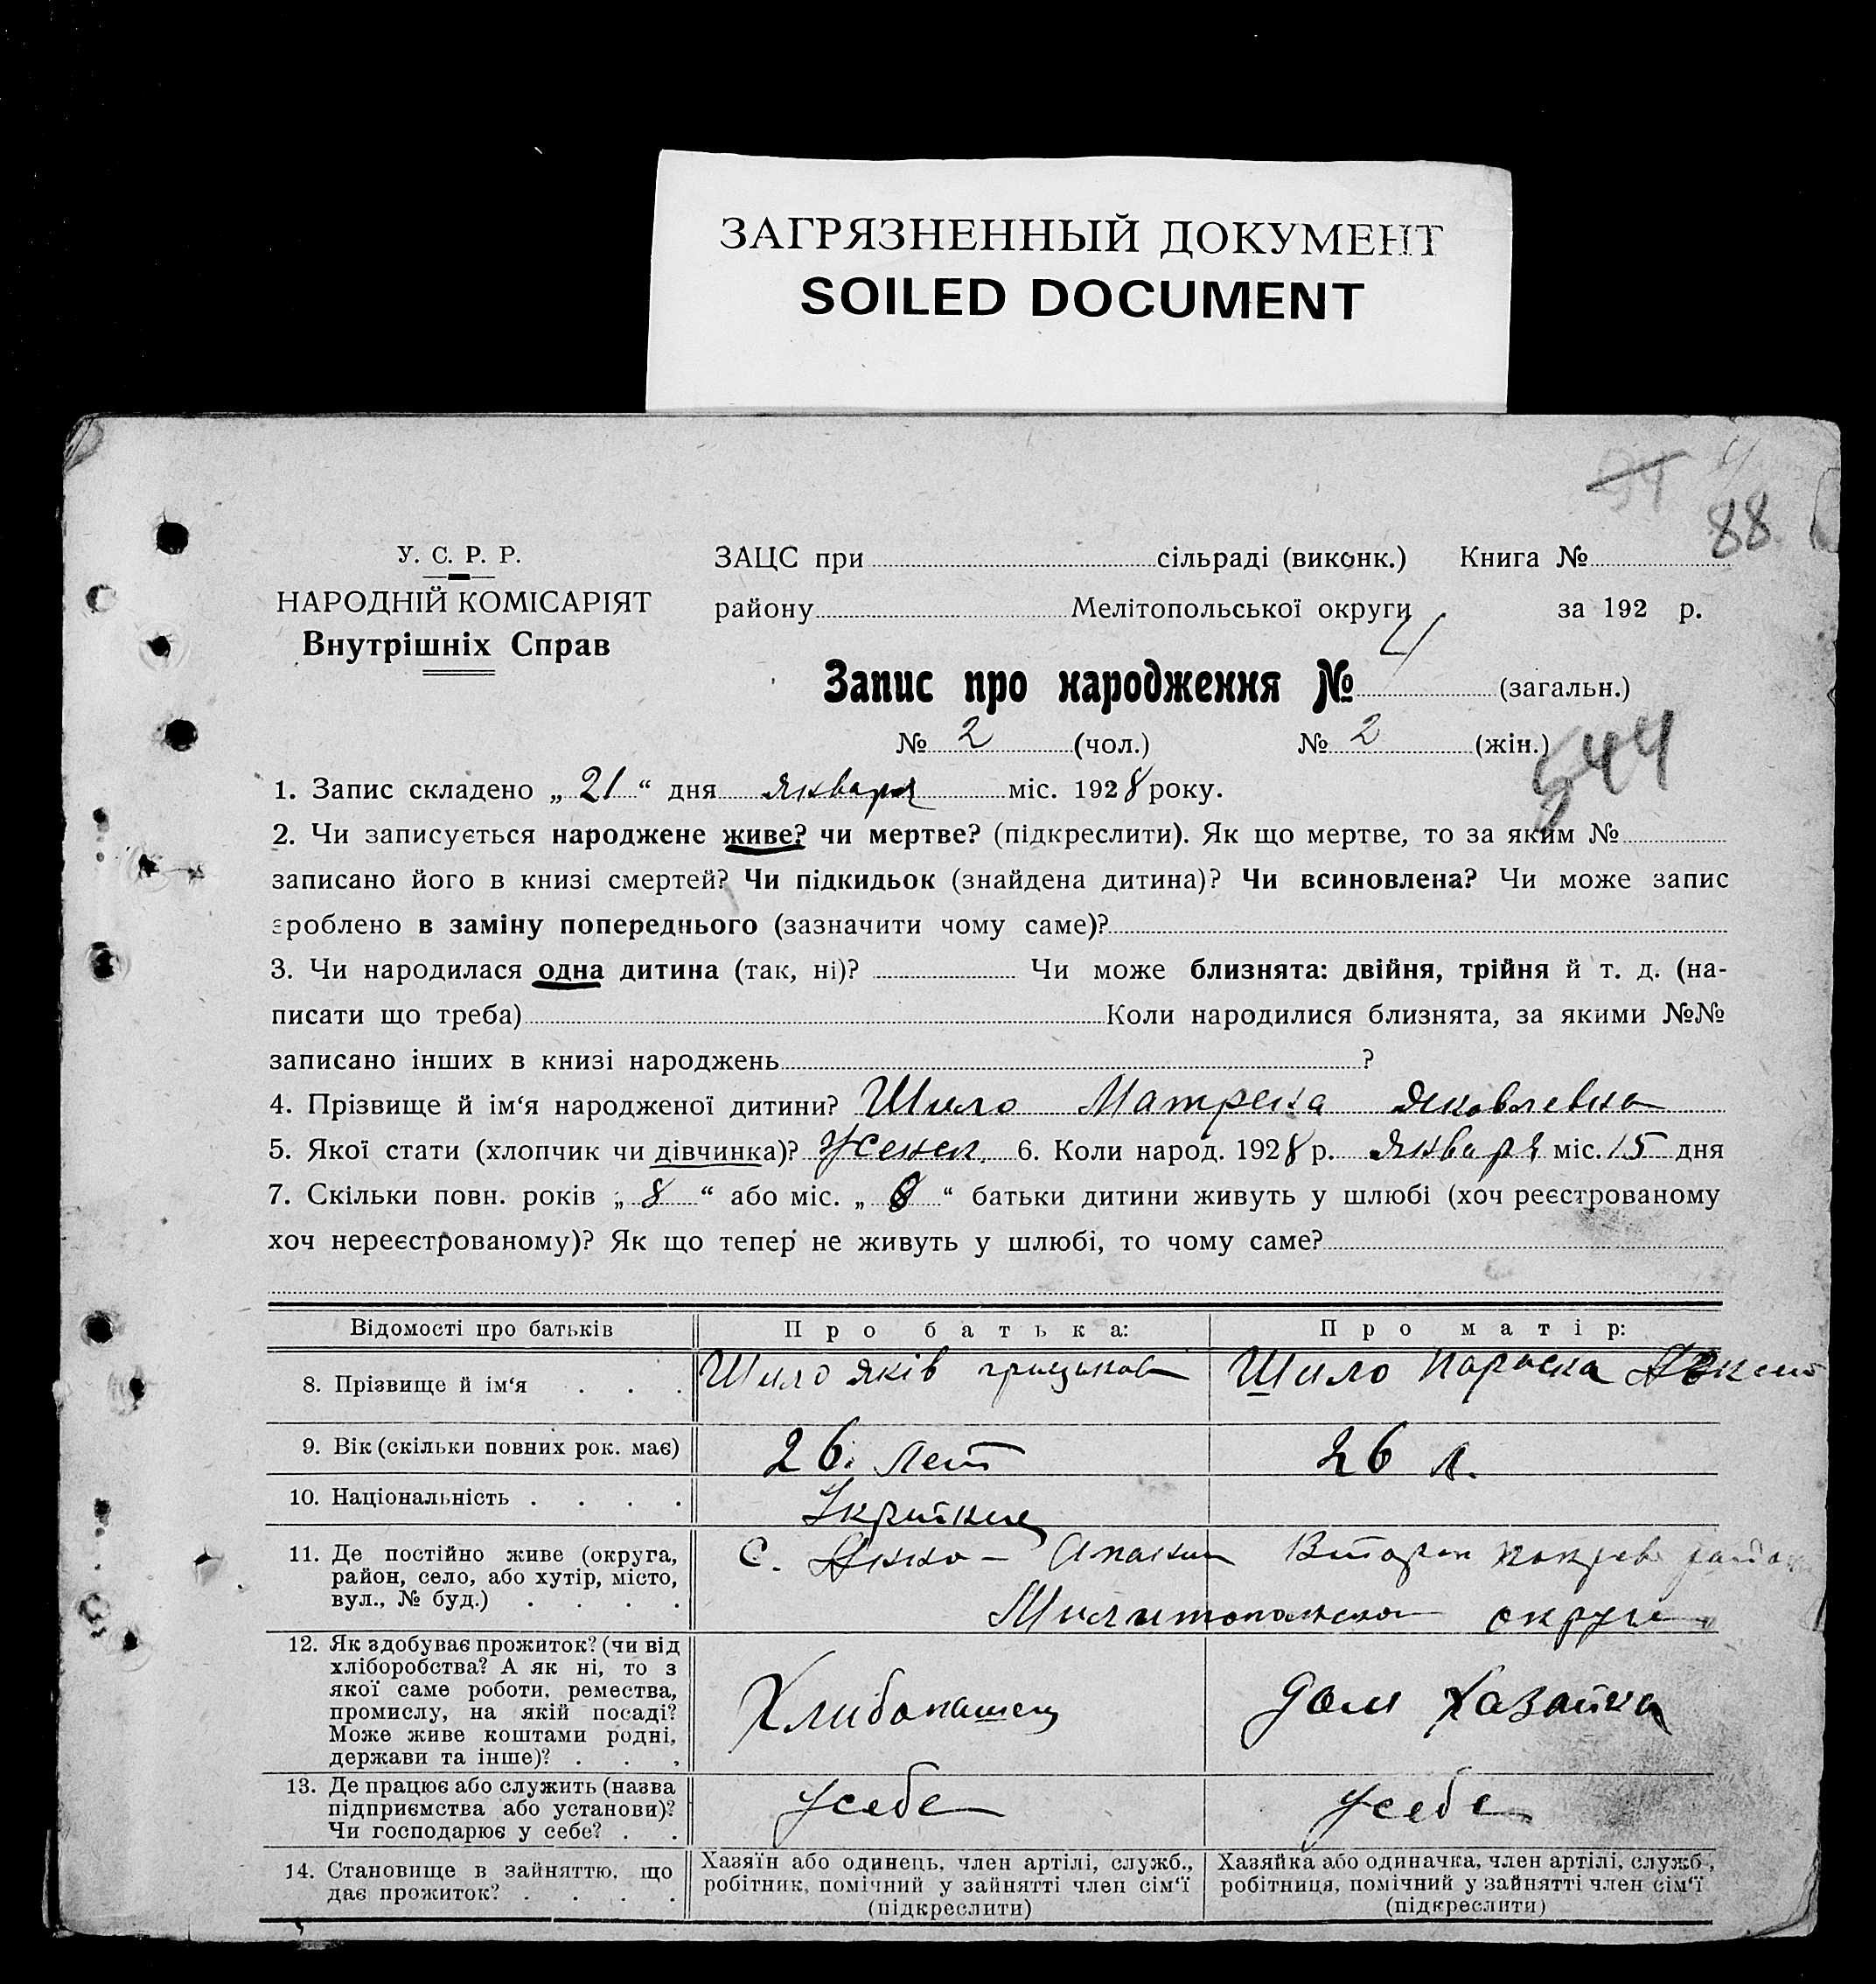 ЗАГРЯЗНЕННЫЙ ДОКУМЕНТ
SOILED DOCUMENT
88
У. С. Р. Р.
НАРОДНІЙ КОМІСАРІЯТ
Внутрішніх Справ
ЗАЦС при сільраді (виконк.) Книга №
району Мелітопольської округи за 192 р.
Запис про народження № 4 (загальн.)
№ 2 (чол.) № 2 (жін.)
544
1. Запис складено „ 21 “ дня января міс. 1928 року.
2. Чи записується народжене живе? чи мертве? (підкреслити). Як що мертве, то за яким №
записано його в книзі смертей? Чи підкидьок (знайдена дитина)? Чи всиновлена? Чи може запис
зроблено в заміну попереднього (зазначити чому саме)?
3. Чи народилася одна дитина (так, ні)? Чи може близнята: двійня, трійня й т. д. (на-
писати що треба) Коли народилися близнята, за якими №№
записано інших в книзі народжень ?
4. Прізвище й ім‘я народженої дитини? Шило Матрена Яковлевна
5. Якої стати (хлопчик чи дівчинка)? женск. 6. Коли народ. 1928 р. января міс. 15 дня
7. Скільки повн. років „ 8 “ або міс. „ 8 “ батьки дитини живуть у шлюбі (хоч реєстрованому
хоч нереєстрованому)? Як що тепер не живуть у шлюбі, то чому саме?
Відомості про батьків Про батька: Про матір:
8. Прізвище й ім‘я Шило Яків Грицьков Шило Параска
9. Вік (скільки повних рок. має) 26. лет 26 л.
10. Національність
11. Де постійно живе (округа, с. Анно-
район, село, або хутір, місто,
вул., № буд.) округи
12. Як здобуває прожиток? (чи від
хліборобства? А як ні, то з
якої саме роботи, ремества,
промислу, на якій посаді? Хлибопашец дом хазайка
Може живе коштами родні,
держави та інше)?
13. Де працює або служить (назва
підприємства або установи)? усебе усебе
Чи господарює у себе?
14. Становище в зайняттю, що
дає прожиток?
Хазяїн або одинець, член артілі, служб.,
робітник, помічний у зайнятті член сім‘ї
(підкреслити)
Хазяйка або одиначка, член артілі, служб.,
робітниця, помічний у зайнятті член сім‘ї
(підкреслити)